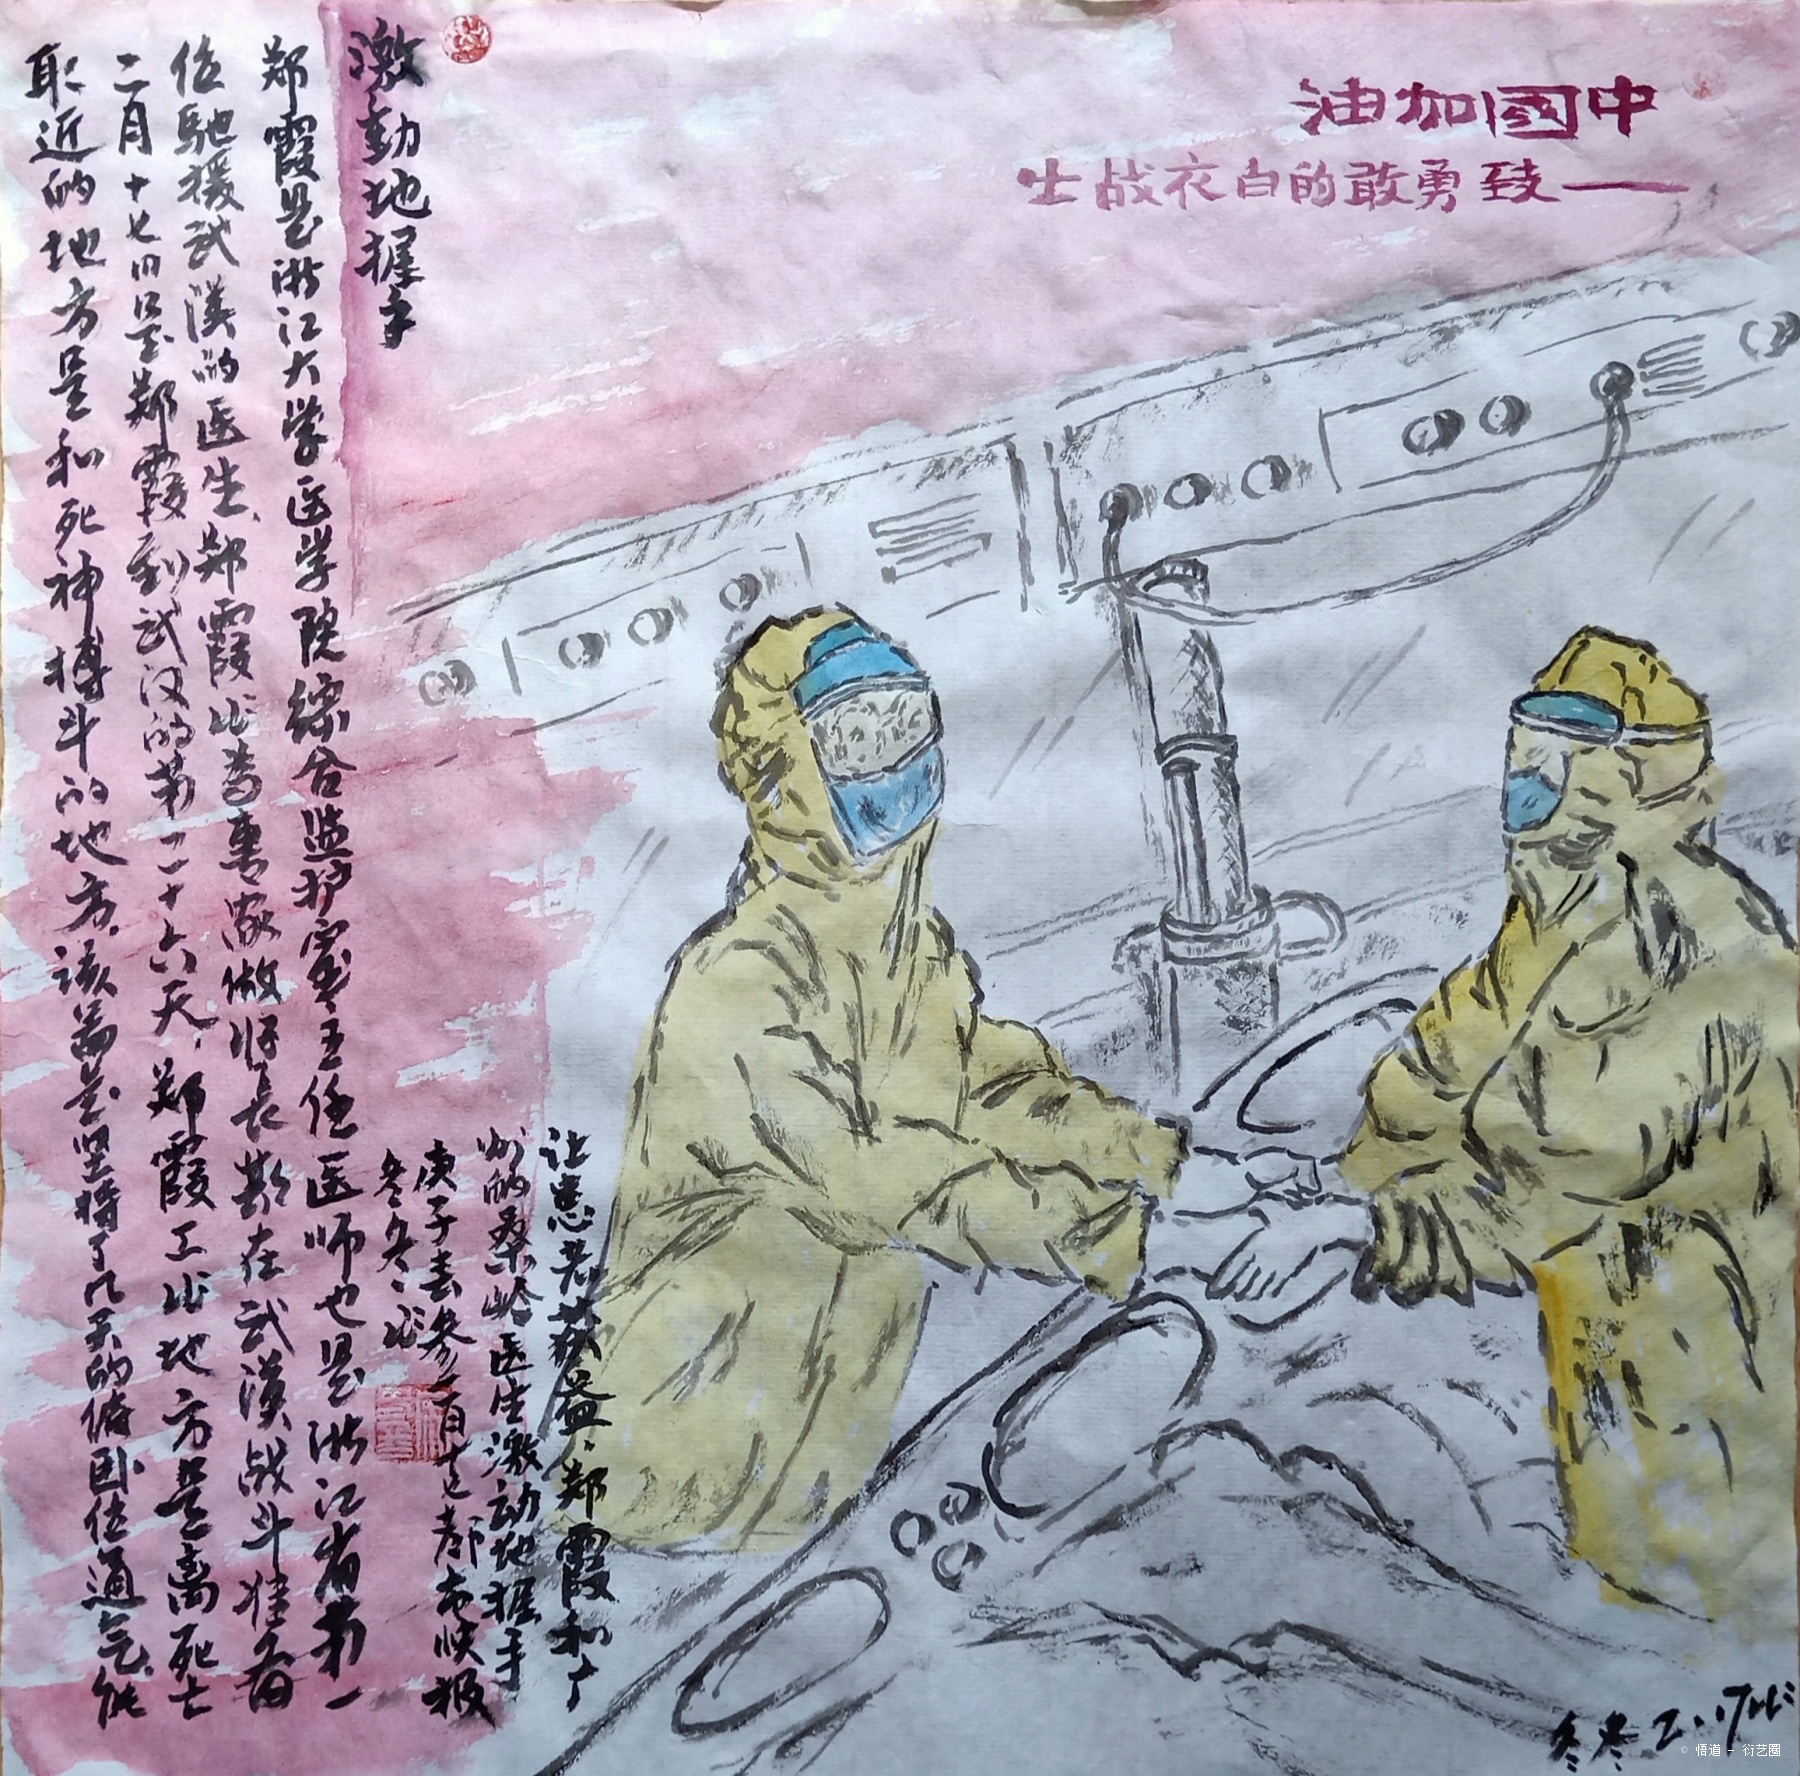 中國加油
——致勇敢的白衣战士
激動地握手
郑霞是浙江大学医学院综合监护室主任医师也是浙江省第一
位馳援武漢的医生,郑霞作为專家做好長期在武漢战斗准备
二月十七日是郑霞到武汉的第二十六天,郑霞工作地方是离死亡
最近的地方是和死神搏斗的地方,该患者坚持了几天的俯卧位通气,能
让患者获益,郑霞和广
州的桑岭医生激动地握手
庚子春参二月十七都市快报
冬冬作
冬冬 2.17作
© 悟道 - 衍艺圈